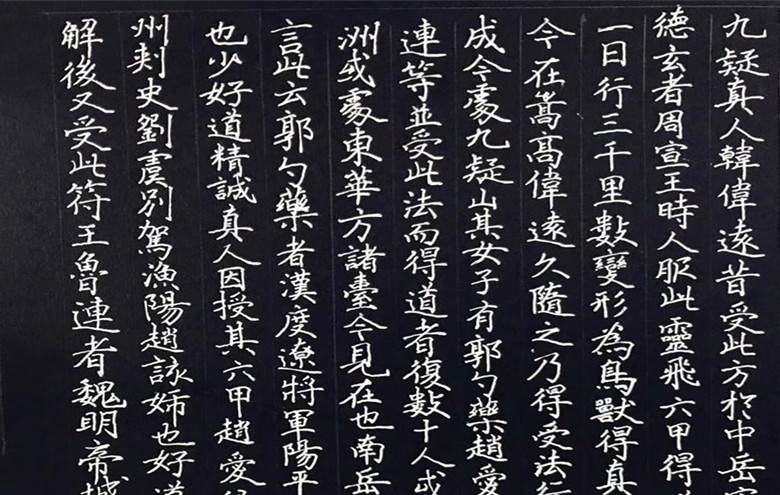 九疑真人韓偉遠昔受此方於中岳
德玄者周宣王時人服此靈飛六甲得
一日行三千里數變形為鳥獸得真
今在嵩高偉遠久隨之乃得受法行
成今處九疑山其女子有郭勺藥趙愛
連等並受此法而得道者復數十人或
洲或處東華方諸臺今見在也南岳
言此云郭勺藥者漢度遼將軍陽平
也少好道精誠真人因授其六甲趙愛
州刾史劉虞別駕漁陽趙該姊也好道
解後又受此符王魯連者魏明帝城